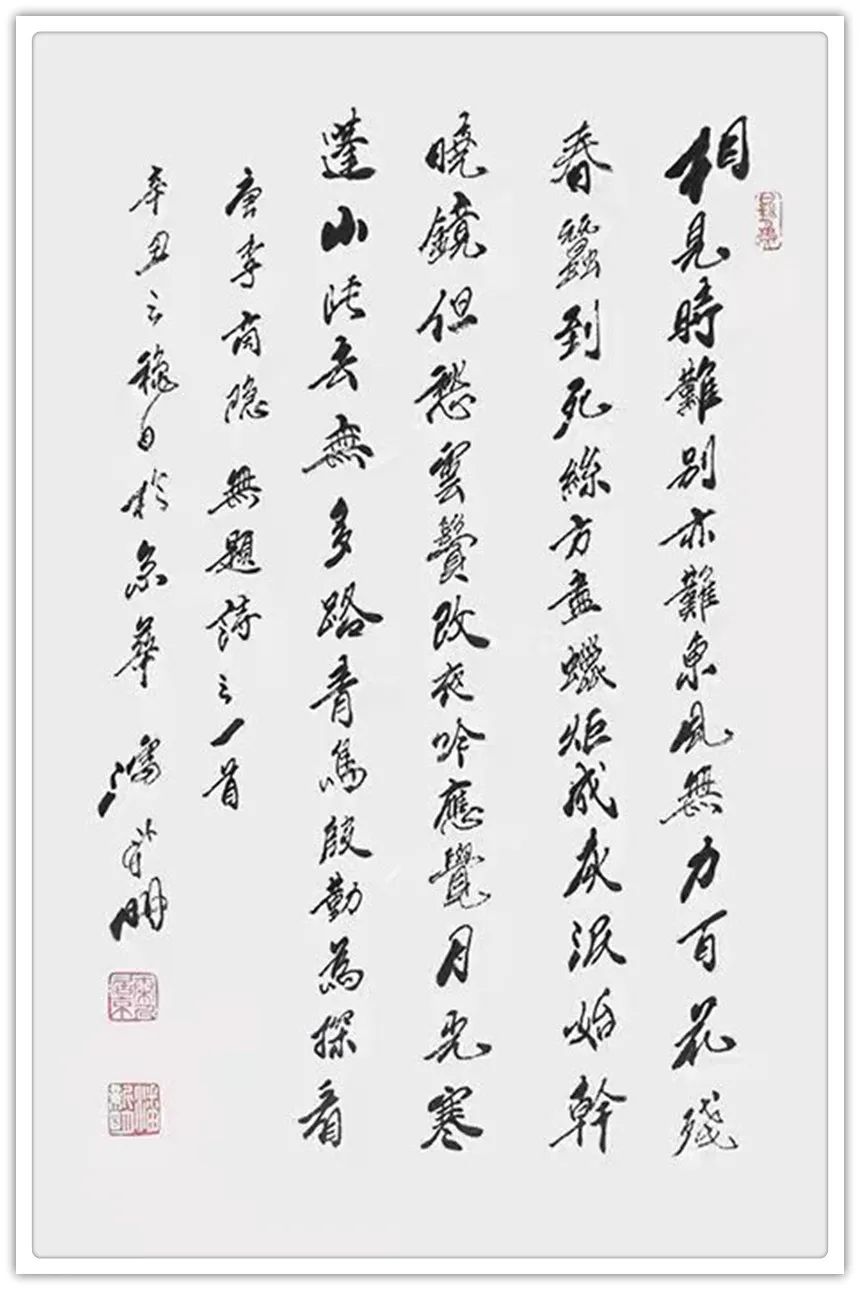 相見時難別亦難東風無力百花殘
春蠶到死絲方盡蠟炬成灰淚始幹
曉鏡但愁雲鬢改夜吟應覺月光寒
蓬山此去無多路青鳥殷勤為探看
唐李商隐無題詩之一首
辛丑之穐日於京華潘明